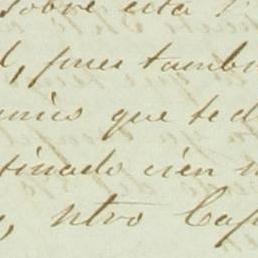 sobre esta
pues tambi
que te d
tinado cien
ntro Cap